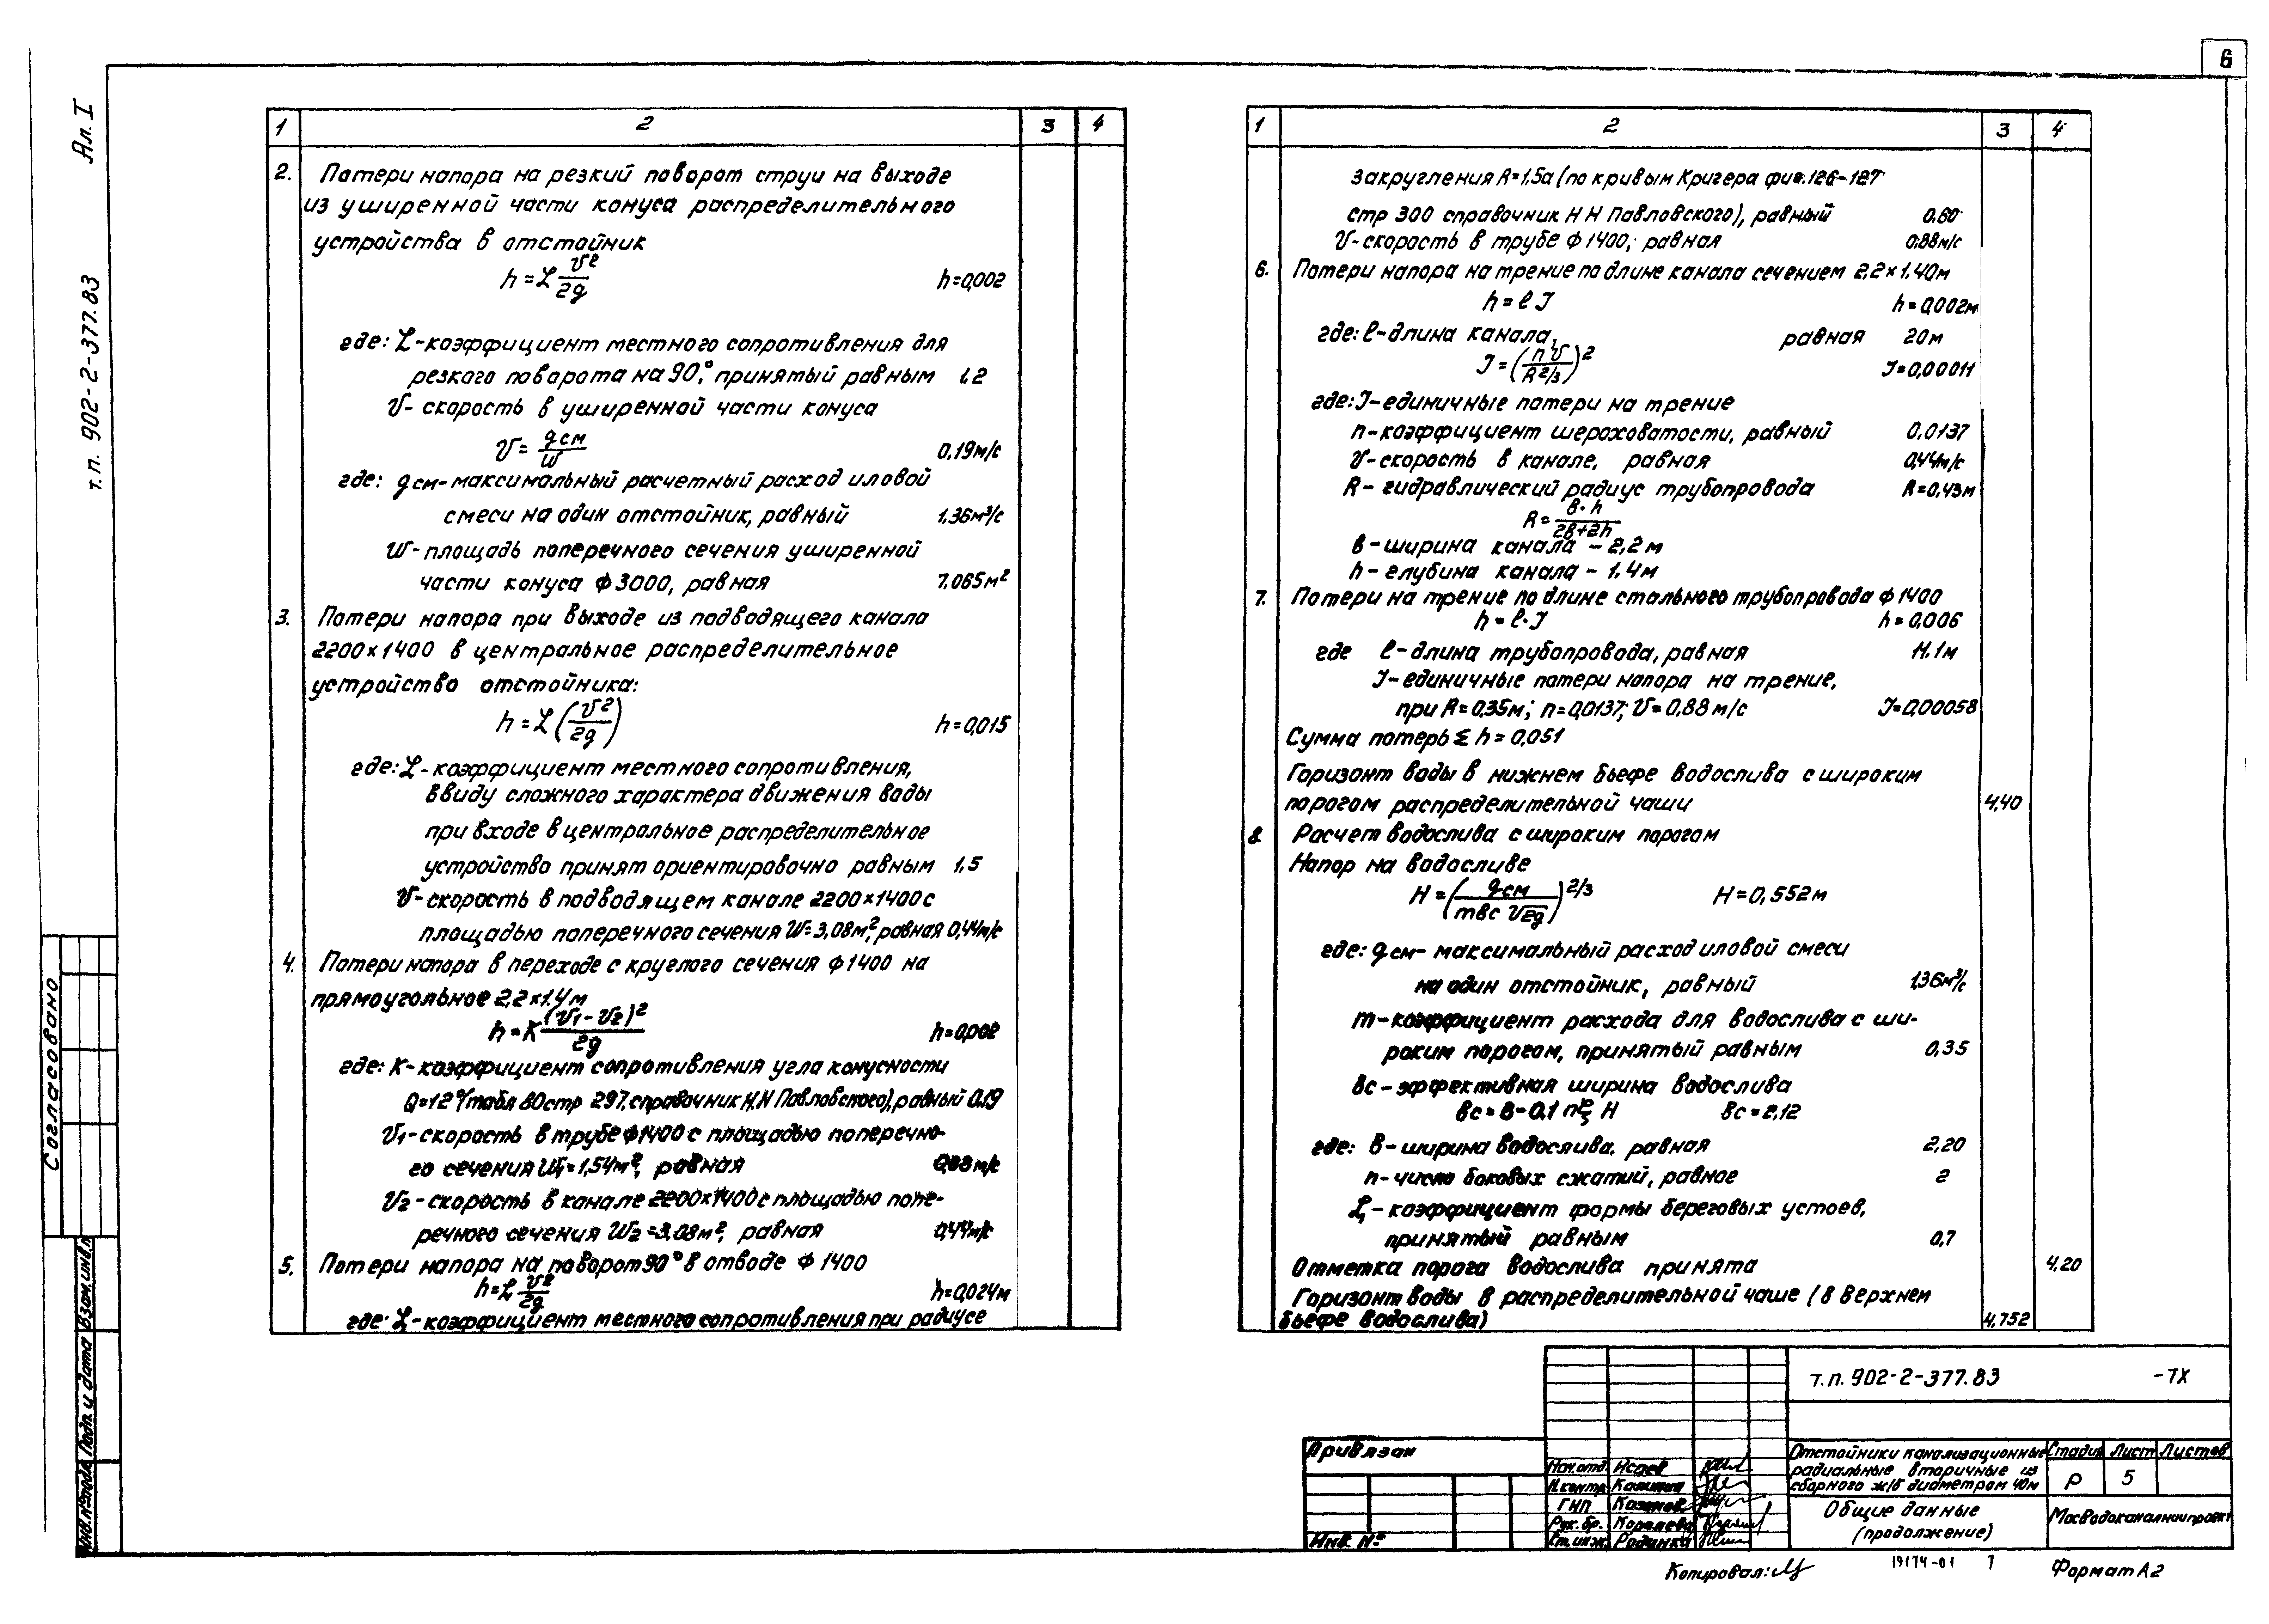 6
Ал. I
т.п. 902-2-377.83
1 2 3 4
2. Потери напора на резкий поворот струи на выходе
из уширенной части конуса распределительного
устройства в отстойник
h = ξ v²/2g h=0,002
где: ξ-коэффициент местного сопротивления для
резкого поворота на 90°, принятый равным 1.2
v- скорость в уширенной части конуса
v = qсм/w 0,19м/с
где: qсм-максимальный расчетный расход иловой
смеси на один отстойник, равный 1,36м³/с
w-площадь поперечного сечения уширенной
части конуса ф3000, равная 7.065м²
3. Потери напора при выходе из подводящего канала
2200×1400 в центральное распределительное
устройство отстойника:
h = ξ (v²/2g) h=0,015
где: ξ-коэффициент местного сопротивления,
ввиду сложного характера движения воды
при входе в центральное распределительное
устройство принят ориентировочно равным 1,5
v-скорость в подводящем канале 2200×1400 с
площадью поперечного сечения W=3,08м², равная 0,44м/с
4. Потери напора в переходе с круглого сечения ф1400 на
прямоугольное 2,2×1.4м
h=K (v1-v2)²/2g h=0,002
где: К-коэффициент сопротивления угла конусности
Q=12°(табл 80 стр 297, справочник Н.Н Павловского), равный 0.19
v1-скорость в трубе ф1400 с площадью поперечно-
го сечения W1=1,54м², равная 0,88м/с
v2-скорость в канале 2200×1400 с площадью попе-
речного сечения W2=3.08м², равная 0,44м/с
5. Потери напора на поворот 90° в отводе ф 1400
h=ξ v²/2g h=0,024м
где: ξ-коэффициент местного сопротивления при радиусе
1 2 3 4
закругления R=1,5а (по кривым Кригера фиг.126-127
стр 300 справочник Н Н Павловского), равный 0.60
v-скорость в трубе ф 1400, равная 0.88м/с
6. Потери напора на трение по длине канала сечением 2,2×1,40м
h = ℓ J h=0,002м
где: ℓ-длина канала, равная 20м
J=(n v/R 2/3)² J=0,00011
где: J-единичные потери на трение
n-коэффициент шероховатости, равный 0,0137
v-скорость в канале, равная 0,44м/с
R- гидравлический радиус трубопровода R=0,43м
R= в·h/2в+2h
в-ширина канала - 2,2м
h- глубина канала - 1.4м
7. Потери на трение по длине стального трубопровода ф 1400
h = ℓ·J h=0,006
где ℓ-длина трубопровода, равная 11.1м
J-единичные потери напора на трение,
при R=0.35м; n=0,0137; v=0,88м/с J=0,00058
Сумма потерь Σ h = 0,051
Горизонт воды в нижнем бьефе водослива с широким
порогом распределительной чаши 4,40
8. Расчет водослива с широким порогом
Напор на водосливе
H=(qсм/mвс √2g)2/3 H=0,552м
где: qсм- максимальный расход иловой смеси
на один отстойник, равный 1,36м³/с
m-коэффициент расхода для водослива с ши-
роким порогом, принятый равным 0,35
вс-эффективная ширина водослива
вс=в-0.1 nξ H вс=2,12
где: в-ширина водослива, равная 2,20
n-число боковых сжатий, равное 2
ξ-коэффициент формы береговых устоев,
принятый равным 0,7
Отметка порога водослива принята 4,20
Горизонт воды в распределительной чаше (в верхнем
бьефе водослива) 4,752
Согласовано
Взам.инв.№
Подп. и дата
Инв.№подл.
т.п. 902-2-377.83 -ТХ
Привязан
Инв. №
Нач.отд. Исаев
Н.контр
ГИП
Рук.бр. Королева
Ст.инж. Родинка
Отстойники канализационные
радиальные вторичные из
сборного ж/б диаметром 40м
Стадия Лист Листов
Р 5
Общие данные
(продолжение)
МосводоканалНИИпроект
Копировал:
19174-01 7
Формат А2